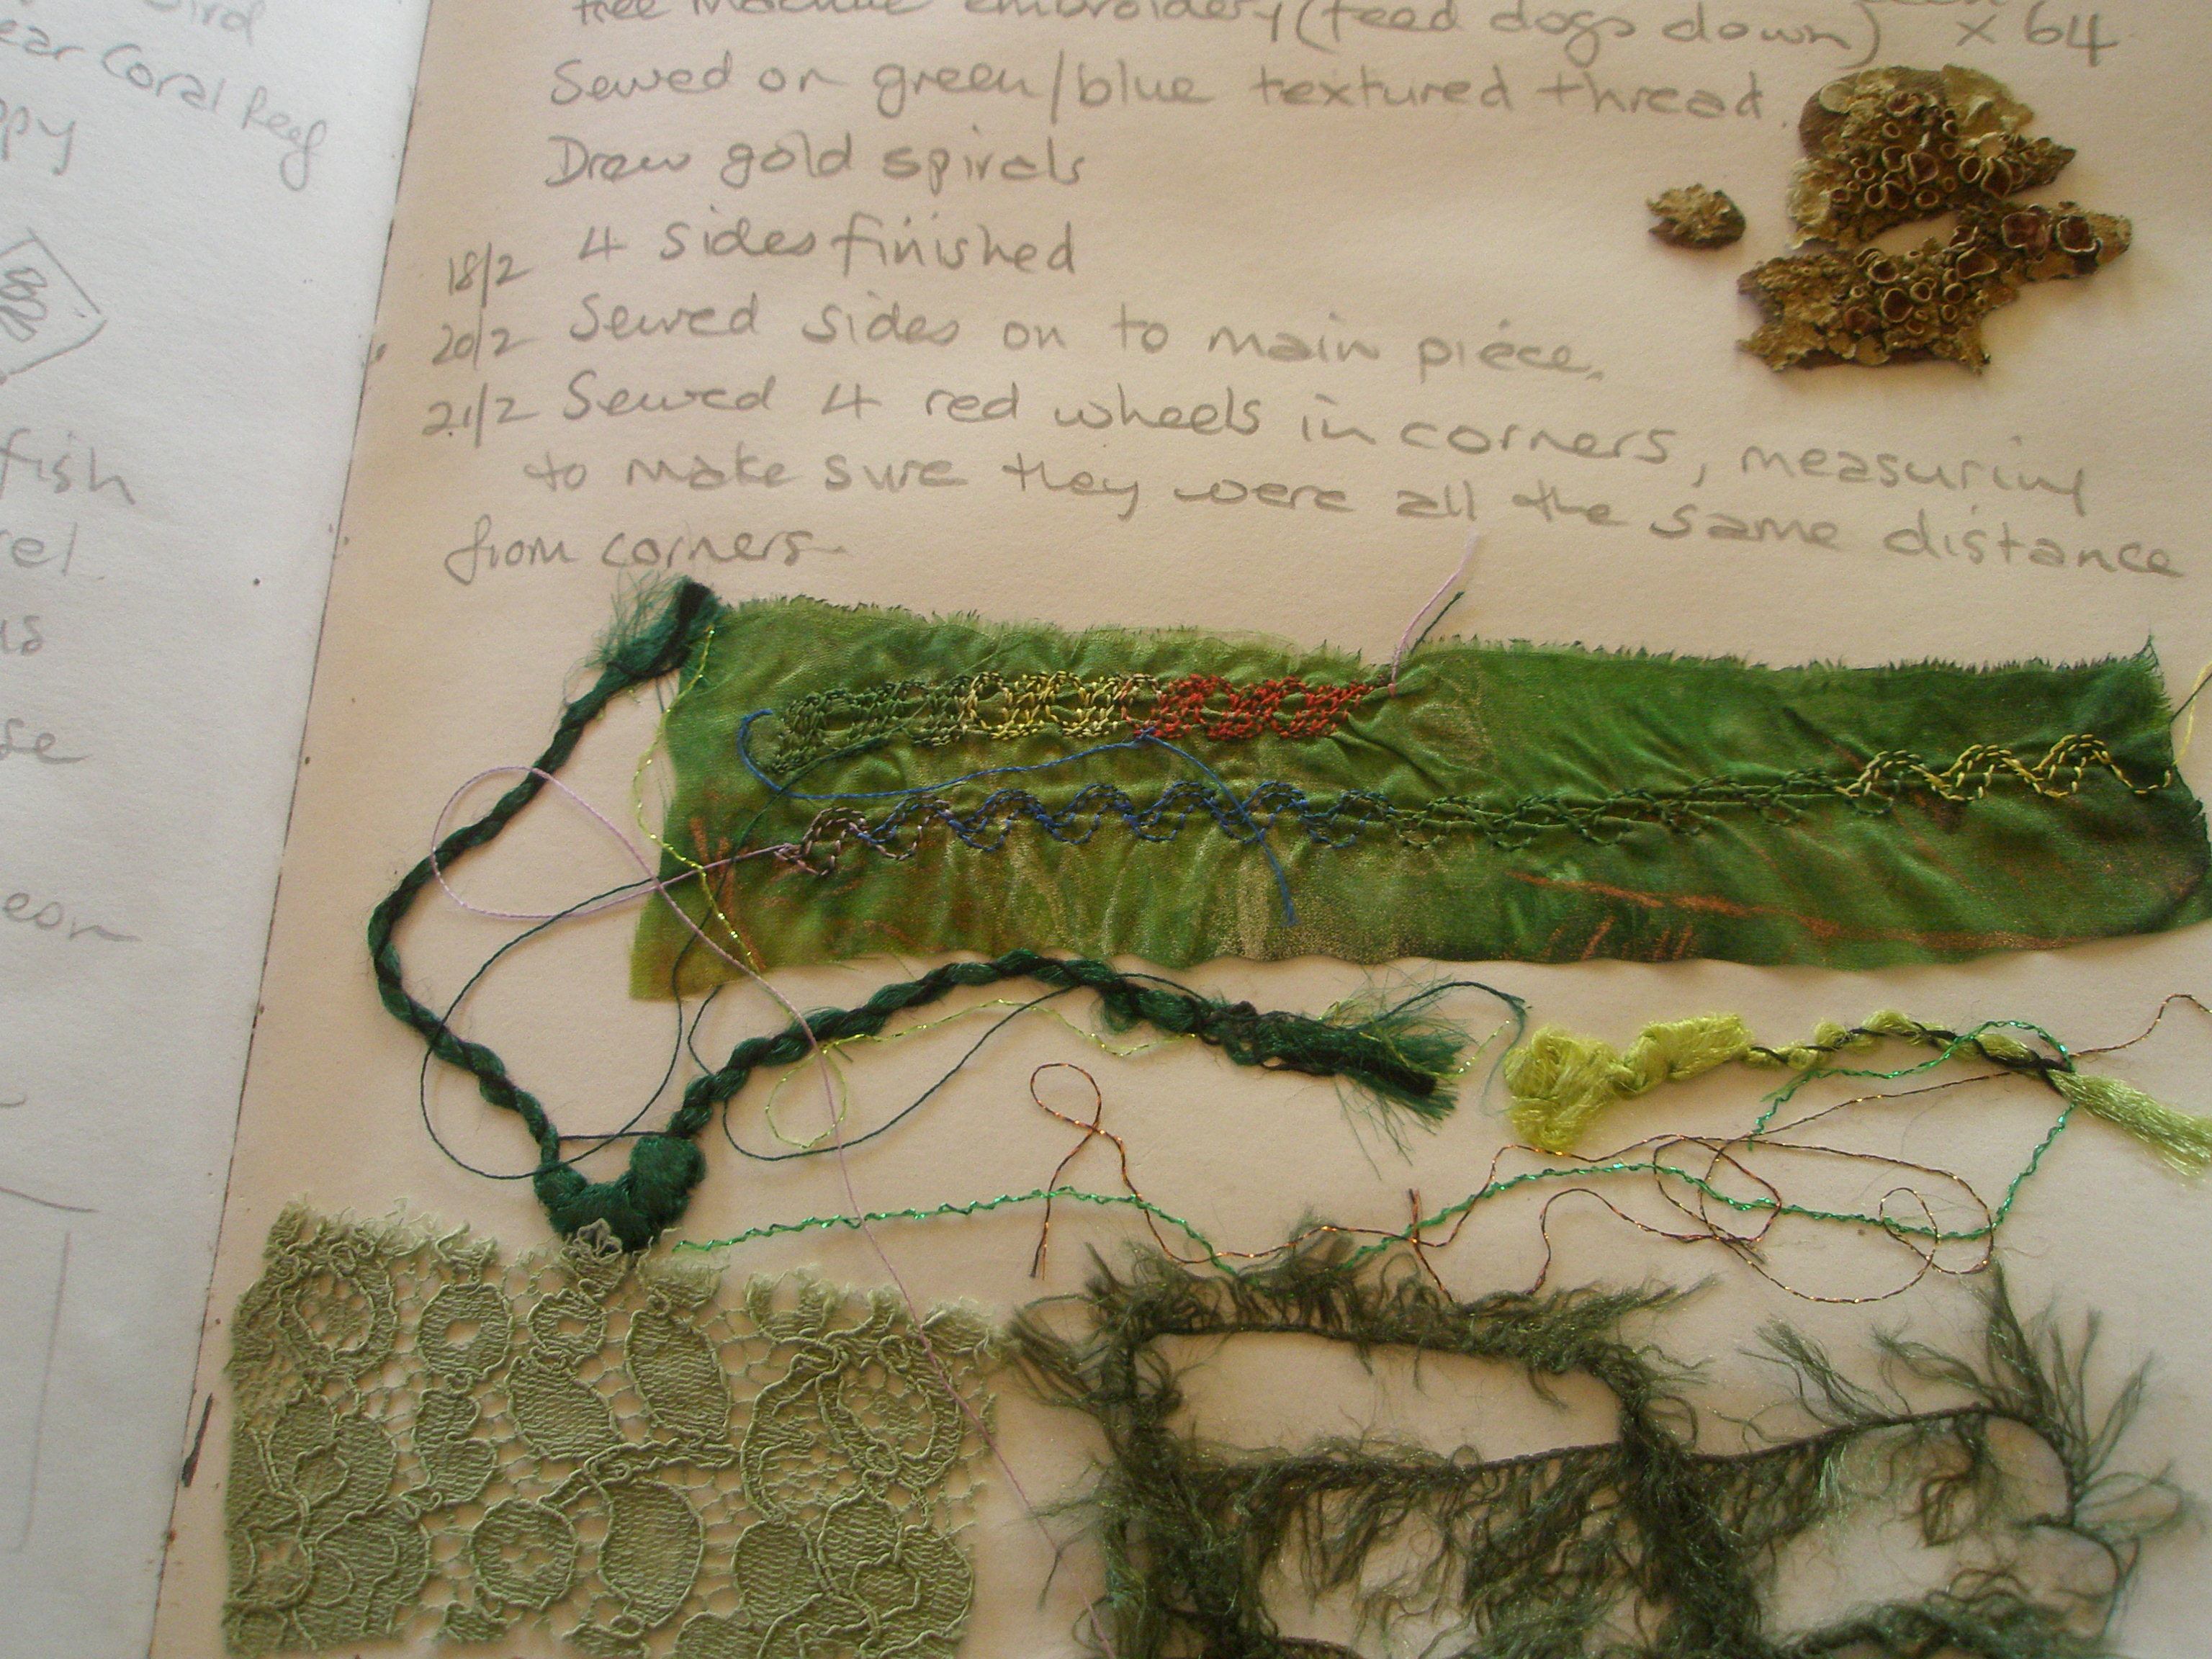 ear Coral Reef
fish
free machine embroidery (feed dogs down) x 64
Sewed on green/blue textured thread.
Draw gold spirals
18/2 4 sides finished
20/2 Sewed sides on to main piece.
21/2 Sewed 4 red wheels in corners, measuring
to make sure they were all the same distance
from corners.